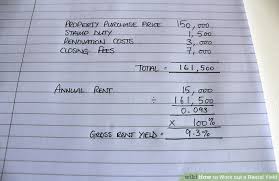 PROPERTY PURCHASE PRICE 150,000
STAMP DUTY 1,500
RENOVATION COSTS 3,000
CLOSING FEES 7,000
TOTAL = 161,500
ANNUAL RENT 15,000
÷ 161,500
0.093
X 100%
GROSS RENT YIELD = 9.3%
wiki How to Work out a Rental Yield